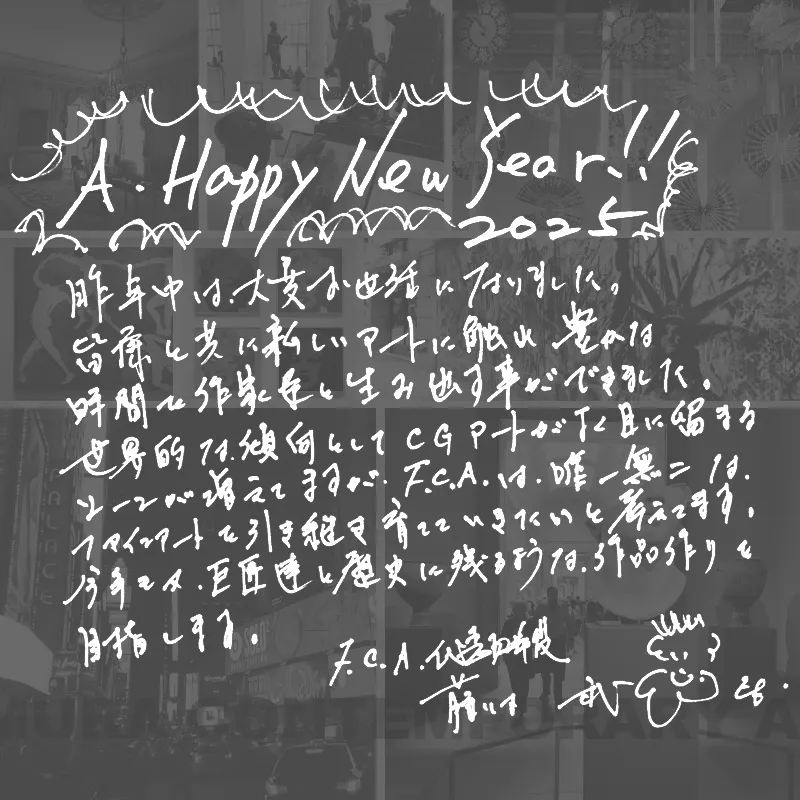 A. Happy New Year!!
2025
昨年中は、大変お世話になりました。
皆様と共に新しいアートに触れ 豊かな
時間を作家達と生み出す事ができました。
世界的な傾向として CGアートが 目に留まる
シーンが増えてますが、F.C.A.は、唯一無二な、
ファインアートを引き継ぎ育てていきたいと考えてます。
今年こそ、巨匠達と歴史に残るような、作品作りを
目指します。
F.C.A.